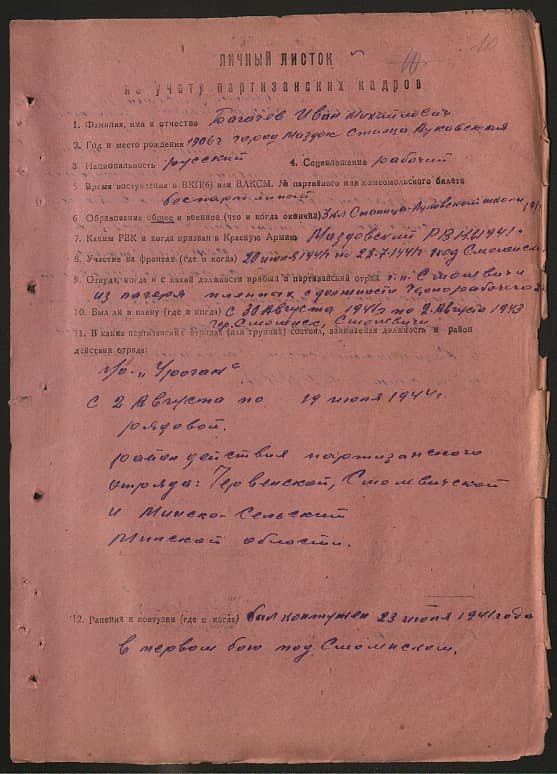 10
ЛИЧНЫЙ ЛИСТОК
по учету партизанских кадров
1. Фамилия, имя и отчество Багачов Иван Михайлович
2. Год и место рождения 1906 г город Маздок Станица Луковская
3. Национальность русский 4. Соцположение рабочий
5. Время поступления в ВКП(б) или ВЛКСМ. № партийного или комсомольского билета
беспартийный
6. Образование общее и военное (что и когда окончил) 3 кл Станица-Луковской школы
7. Каким РВК и когда призван в Красную Армию Маздовский РВК 1941 г
8. Участие на фронтах (где и когда) 1941 по 28-7-1941 под Смоленск
9. Откуда, когда и с какой должности прибыл в партизанский отряд г.п. Смолевичи
из лагеря пленных с должности
10. Был ли в плену (где и когда) С 30 Августа 1941 г по 2 Августа 1943
гр. Смоленск, Смолевичи
11. В каких партизанских отрядах (или группах) состоял, занимаемая должность и район
действия отряда:
п/о „Ураган“
С 2 Августа по 19 июля 1944 г.
рядовой.
район действия партизанского
отряда: Червенской, Смолевичской
и Минско-Сельский
Минской области.
12. Ранения и контузии (где и когда) был контужен 23 июля 1941 года
в первом бою под Смоленском.